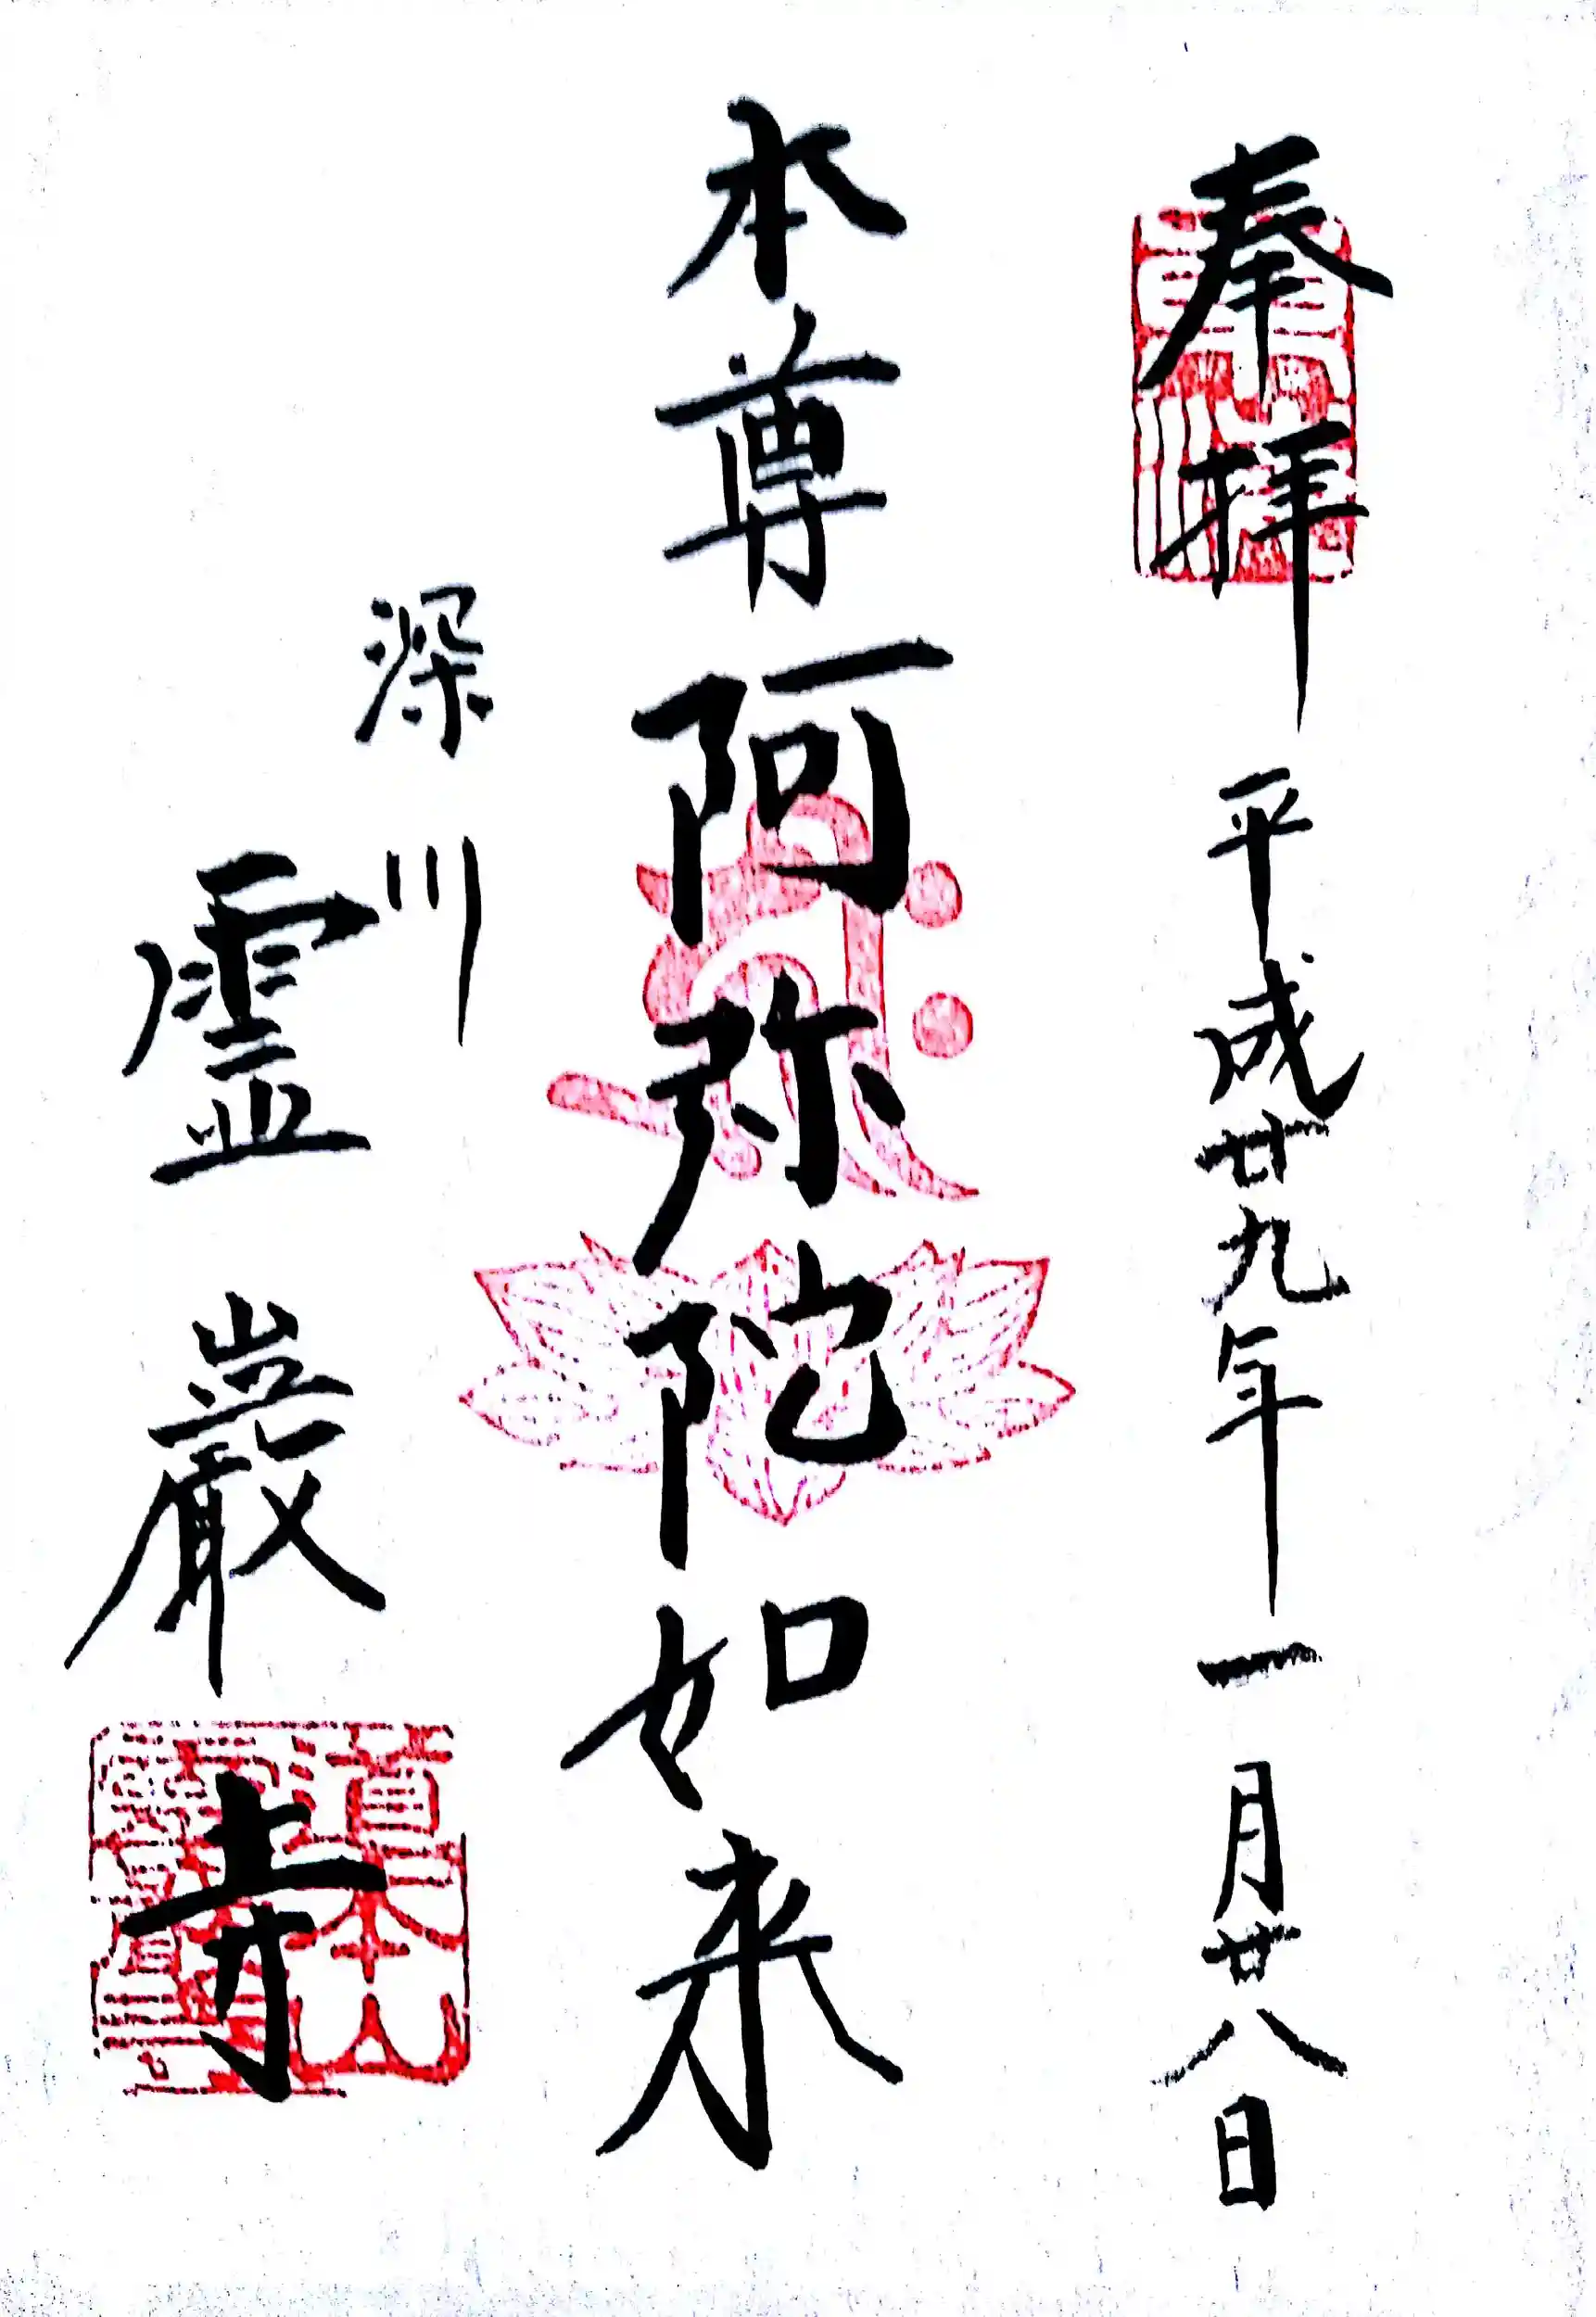 奉拝 平成廿九年一月廿八日
本尊阿弥陀如来
深川
霊巌寺
道本山